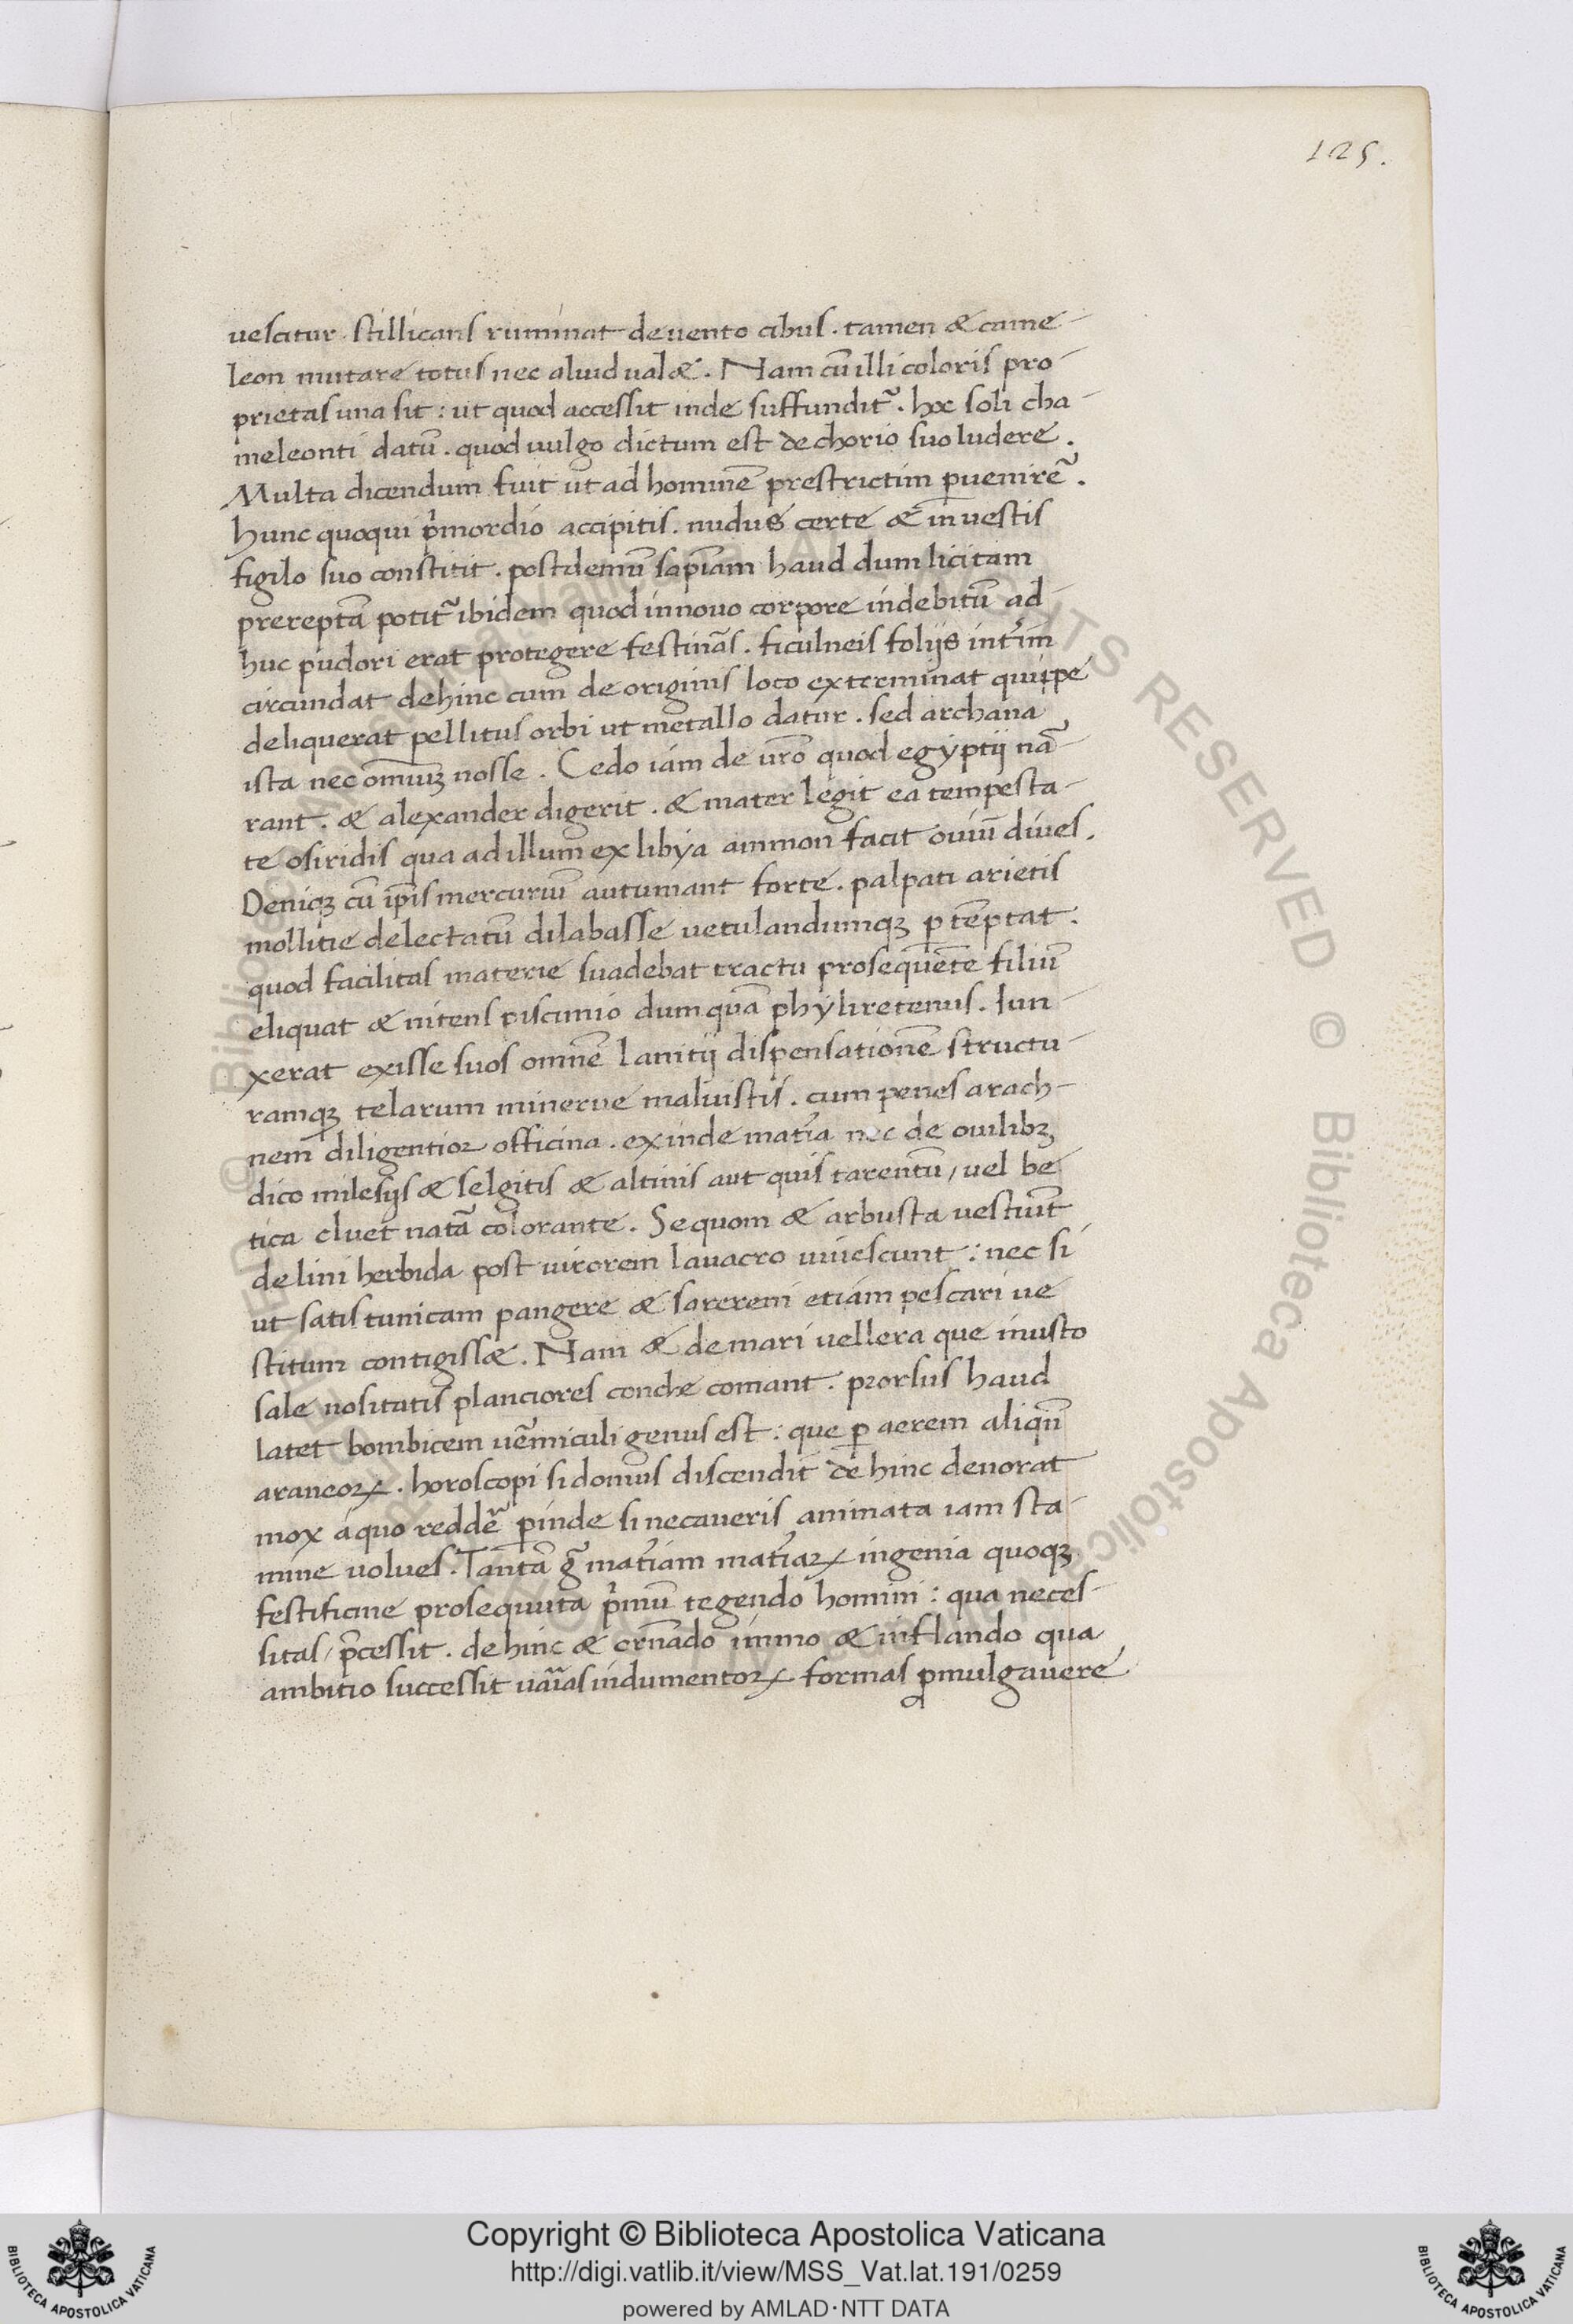 125.
vescitur . stillicans ruminat de vento cibus . tamen & came-
leon mutare totus nec aliud val&. Nam cũ illi coloris pro-
prietas una sit: ut quod accessit inde suffundit᷑. hoc soli cha-
meleonti datũ. quod vulgo dictum est de chorio suo ludere.
Multa dicendum fuit ut ad hominẽ prestrictim ꝑvenire᷑.
hunc quoqui p̾mordio accipitis. nudus certe & investis
figilo suo constitit. post demũ sap̃iam haud dum licitam
prereptã potit᷑ ibidem quod in novo corpore indebitũ ad-
huc pudori erat protegere festinãs. ficulneis folijs int̾im
circundat dehinc cum de originis loco exterminat quippe
deliquerat pellitus orbi ut metallo datur. sed archana
ista nec omiũꝫ nosse. Cedo iam de vr̃o quod egyptij nã-
rant. & alexander digerit. & mater legit ea tempesta-
te osiridis qua ad illum ex libya ammon facit oviũ dives.
Deniqꝫ cũ ip̃is mercuriũ autumant forte. palpati arietis
mollitie delectatũ dilabasse vetulandumqꝫ ꝑ tẽptat.
quod facilitas materie suadebat tractu prosequẽte filiũ
eliquat & nitens piscinio dum quã phylire tenus. Iun-
xerat exisse suos omnẽ lanitij dispensationẽ structu-
ramqꝫ telarum minerve maluistis. cum penes arach-
nem diligentior officina. exinde mat̾ia nec de ovilibꝫ
dico milesijs & selgitis & altinis aut quis tarentũ/ vel be-
tica cluet natã colorante. Sequom & arbusta vestiũt
de lini herbida post virorem lavacro vivescunt: nec si
ut satis tunicam pangere & sarerem etiam pescari ve
stitum contigiss&. Nam & de mari vellera que inusto
sale nositatis planciores conche comant. prorsus haud
latet bombicem vẽmiculi genus est: que ꝑ aerem aliqñ
araneoꝝ. horoscopi si domus discendit de hinc devorat
mox a quo redde᷑ ꝑinde si necaveris aminata iam sta-
mine volves. Tantã g̃ mat̾iam mat̾iaꝝ ingenia quoqꝫ
festificine prosequuta p̾mũ tegendo homini: qua neces-
sitas/ p̃cessit. de hinc & ornãdo immo & inflando qua
ambitio successit vãias indumentoꝝ formas ꝓmulgavere
Copyright © Biblioteca Apostolica Vaticana
http://digi.vatlib.it/view/MSS_Vat.lat.191/0259
powered by AMLAD·NTT DATA